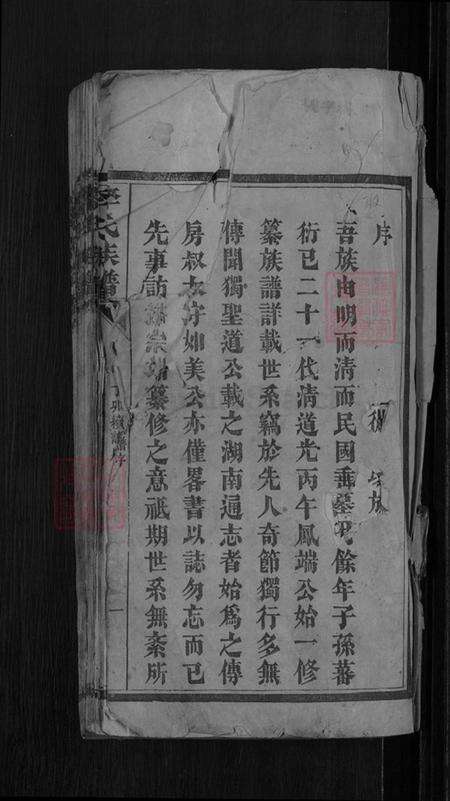 序
吾族由明而清而民國垂 餘年子孫蕃
衍已二十一代清道光丙午鳳端公始一修
纂族譜詳載世系竊於先人奇節獨行多無
傳聞獨聖道公載之湖南通志者始爲之傳
房叔 如美公亦僅畧書以誌勿忘而已
先事訪 纂修之意祇期世系無紊所
李氏族譜
序
一